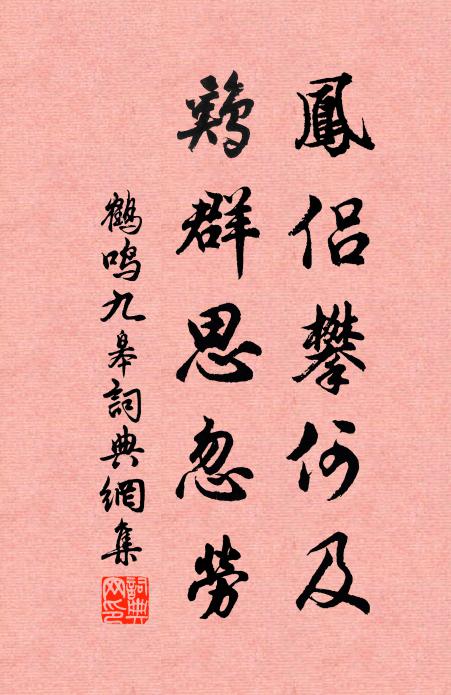 鳳侶攀何及
鷄群思忽勞
鶴鳴九皋詞典網集
詞典網印